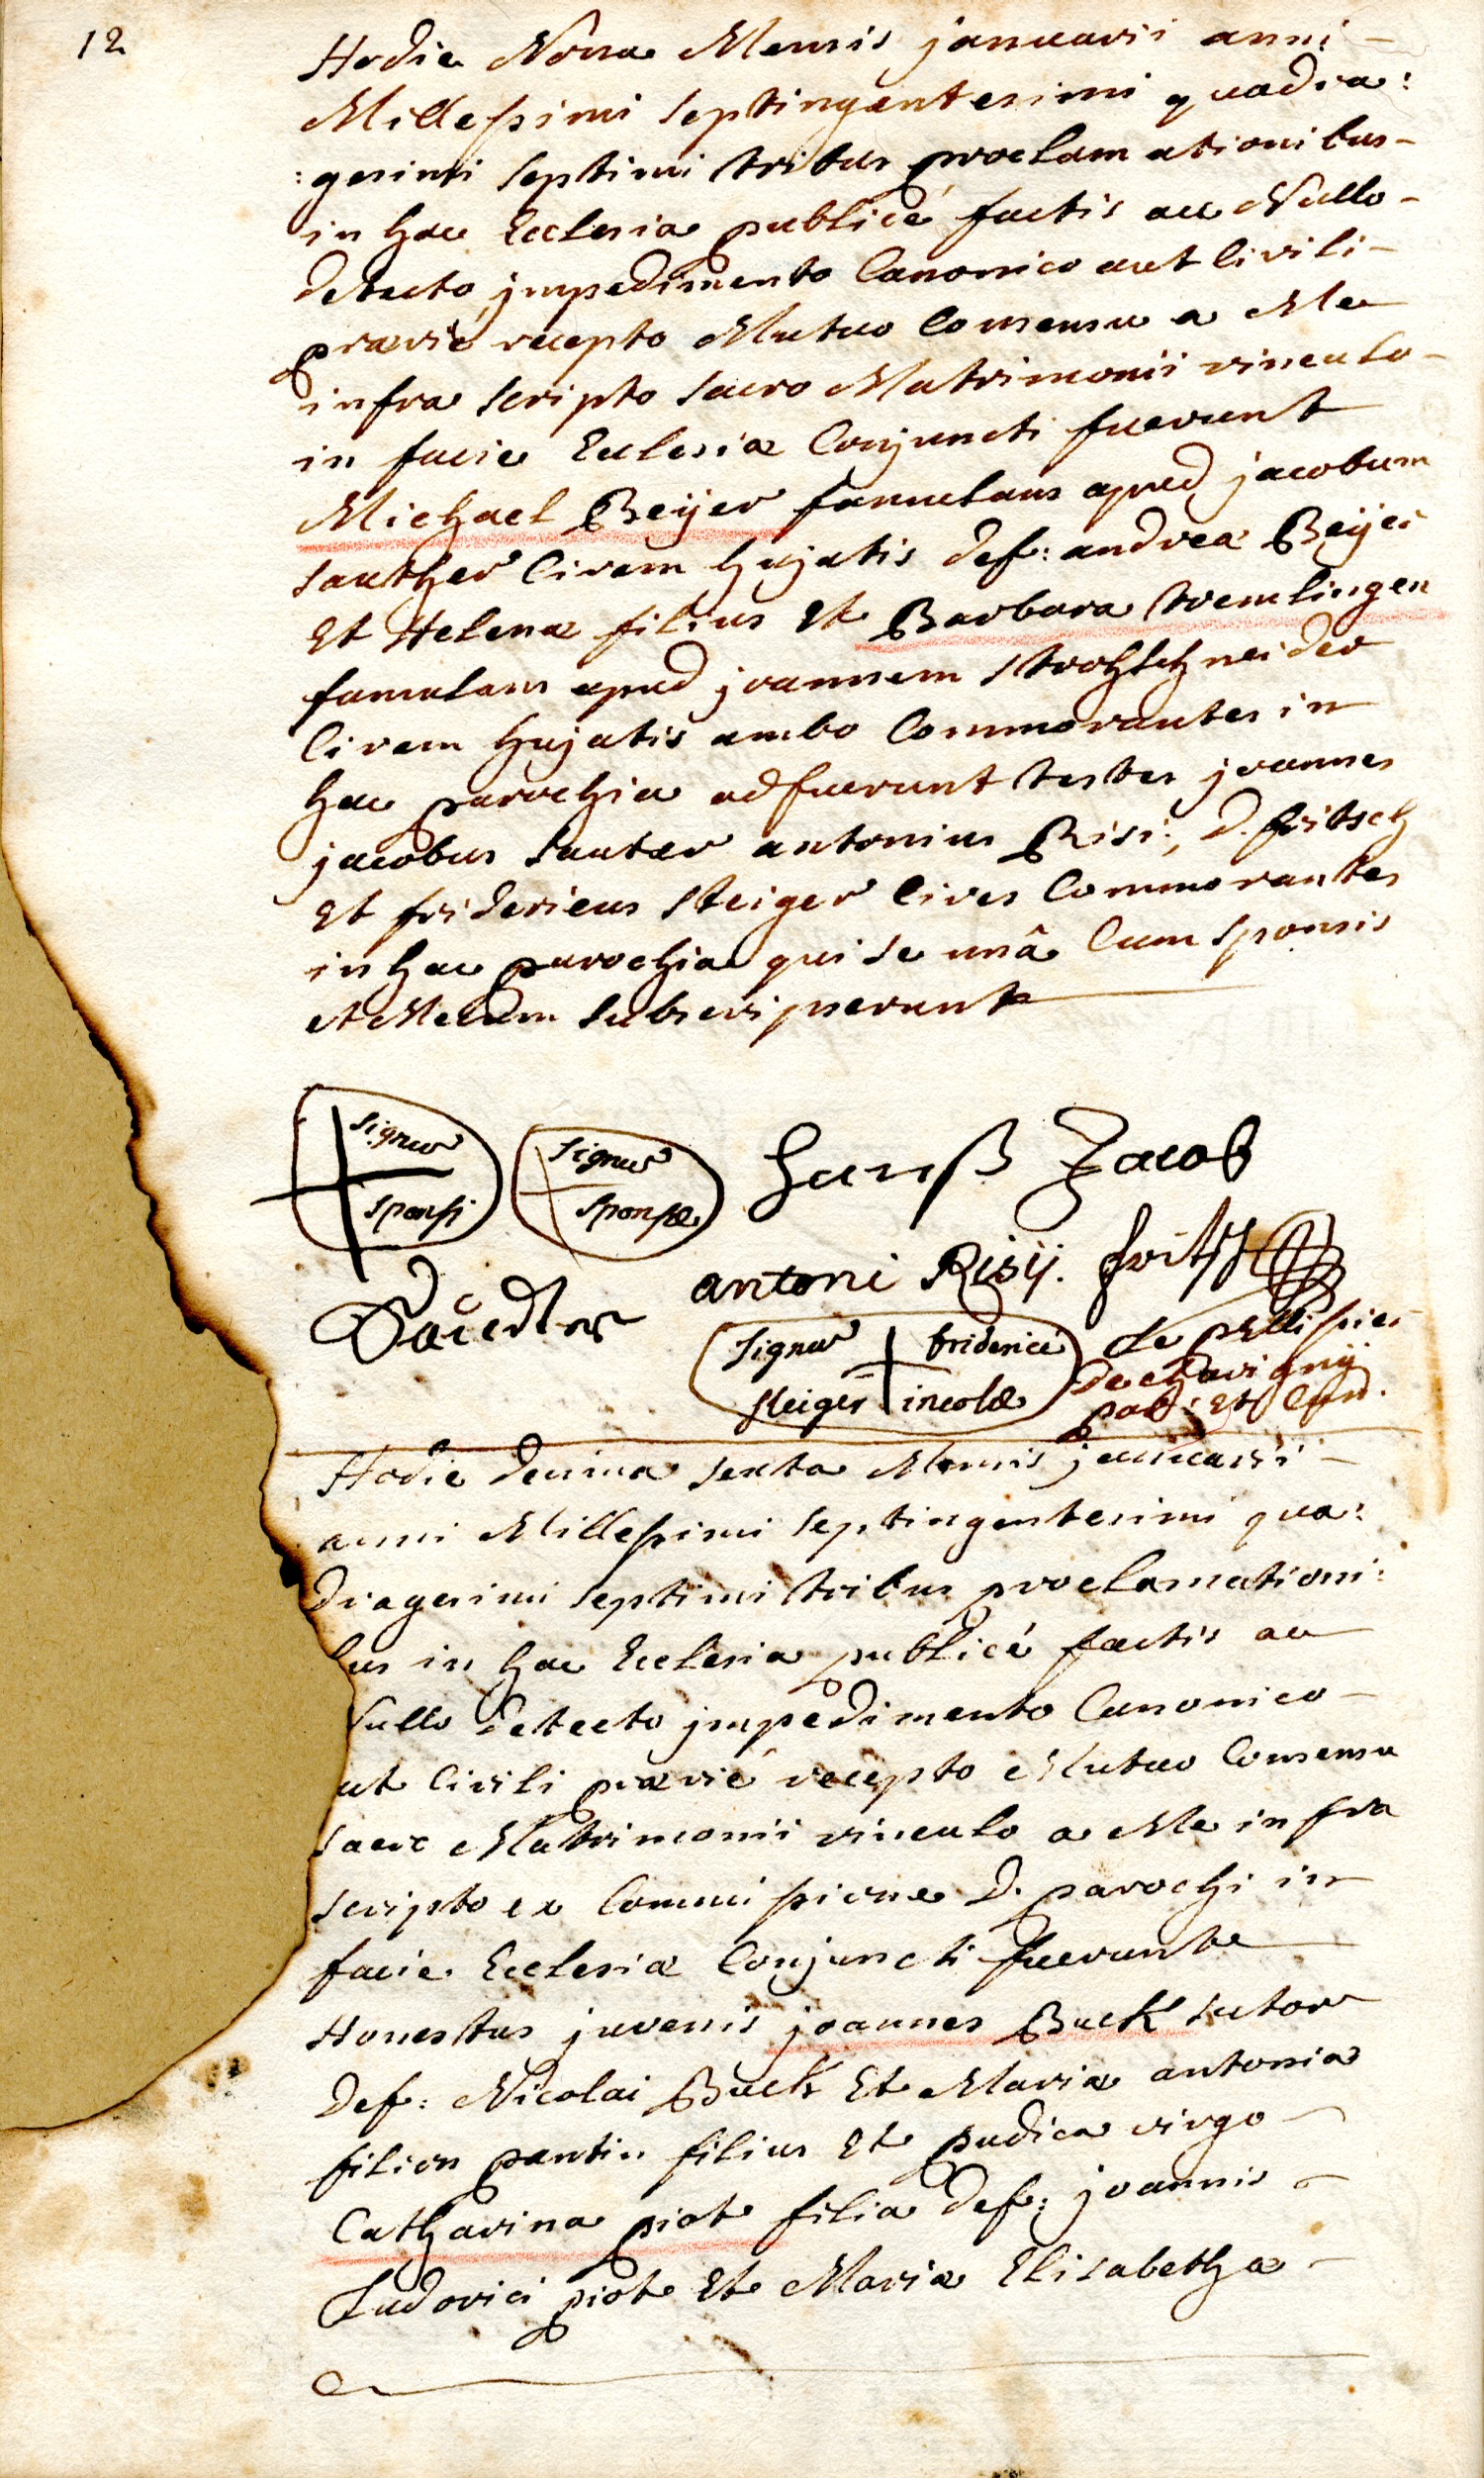 12
Hodie Nona Mensis januarii anni -
Millessimi septingentesimi quadra:
:gesimi septimi tribus proclamationibus -
in hac Ecclesia publicé factis ac Nullo -
detecto jmpedimento Canonico aut Civili -
prævié recepto Mutuo Consensu a Me
infra scripto sacro Matrimonii vinculo -
in facie Ecclesiæ Conjuncti fuerunt
Michael Beÿer famulans apud jacobum
sauther Civem hujatis def: andreæ Beÿer
Et Helenæ filius Et Barbara tremlingen
famulans apud joannem strohschneider
Civem hujatis ambo Commorantes in
hac parochia adfuerunt testes joannes
jacobus sauter antonius Risi; D. fritsch
Et fridericus steiger Cives Commorantes
in hac parochia qui se unâ Cum sponsis
et Mecum subscripserunt
signum sponsi
signum sponsæ
Hanß Jacob
Sauedter
antoni Risÿ. fritsch
signum friderici
steiger incolæ
Le pellissier
de chavignÿ
Hodie decima sexta Mensis januarii -
anni Millessimi septingentesimi qua:
dragesimi septimi tribus proclamationi:
bus in hac Ecclesia publicé factis ac
Nullo detecto jmpedimento Canonico -
ut Civili prævié recepto Mutuo Consensu
sacro Matrimonii vinculo a Me infra
scripto ex Commissione D. parochi in
facie Ecclesiæ Conjuncti fuerunt
Honestus juvenis joannes Buck sutor
def: Nicolai Buck Et Mariæ antoniæ
filion pantin filius Et pudica virgo -
Catharina piot filia def: joannis -
Ludovici piot Et Mariæ Elisabetha -